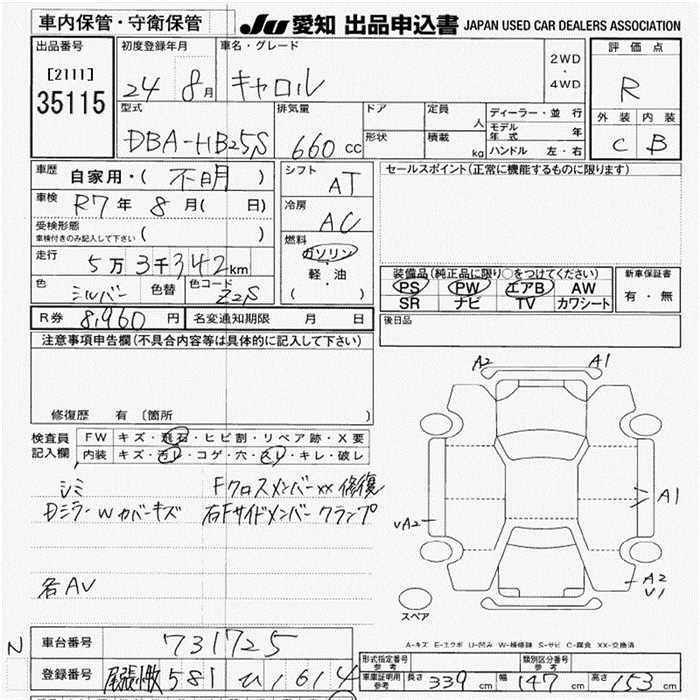 車内保管・守衛保管
JU 愛知 出品申込書 JAPAN USED CAR DEALERS ASSOCIATION
出品番号
[2111]
35115
初度登録年月
24 8月
車名・グレード
キャロル
2WD
・
4WD
評価点
R
外装 内装
C B
型式
DBA-HB25S
排気量
660 cc
ドア
形状
定員 人
積載 kg
ディーラー・並行
モデル年式 年
ハンドル 左・右
車歴 自家用・( 不明 )
車検 R7年 8月( 日)
受検形態
車検付きのみ記入して下さい ( )
走行 5万3千342km
色 シルバー 色替 色コード Z2S
シフト AT
冷房 AC
燃料
ガソリン
軽・油
( )
セールスポイント(正常に機能するものに限ります)
装備品(純正品に限り○をつけてください)
PS PW エアB AW
SR ナビ TV カワシート
新車保証書
有・無
R券 8,960 円 名変通知期限 月 日
後日品
注意事項申告欄(不具合内容等は具体的に記入して下さい)
修復歴 有 〔箇所 〕
検査員記入欄
FW キズ・飛石・ヒビ割・リペア跡・X要
内装 キズ・汚レ・コゲ・穴・スレ・キレ・破レ
シミ Fクロスメンバーxx修復
Dミラー W カバーキズ 右Fサイドメンバークランプ
名AV
A2 A1
A1
vA2
A2
V1
スペア
A-キズ E-エクボ U-凹み W-補修跡 S-サビ C-腐食 XX-交換済
N
車台番号 731725
登録番号 尾張小牧 581 ひ 1614
形式指定番号 参考
類別区分番号 参考
車庫証明用参考 長さ 339 cm 幅 147 cm 高さ 153 cm